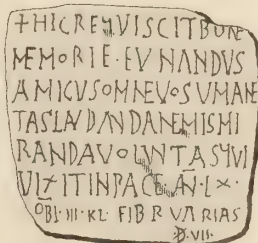 +HICREQVISCITBONE
MEMORIE·EVNANDVS
AMICVSOMNEVOSVMANE
TASLAVDANDANEMISMI
RANDAVOLVNTASQVI
VIXITINPACE·AN·LX·
OBI·III·KL·FIBRVARIAS
VII·